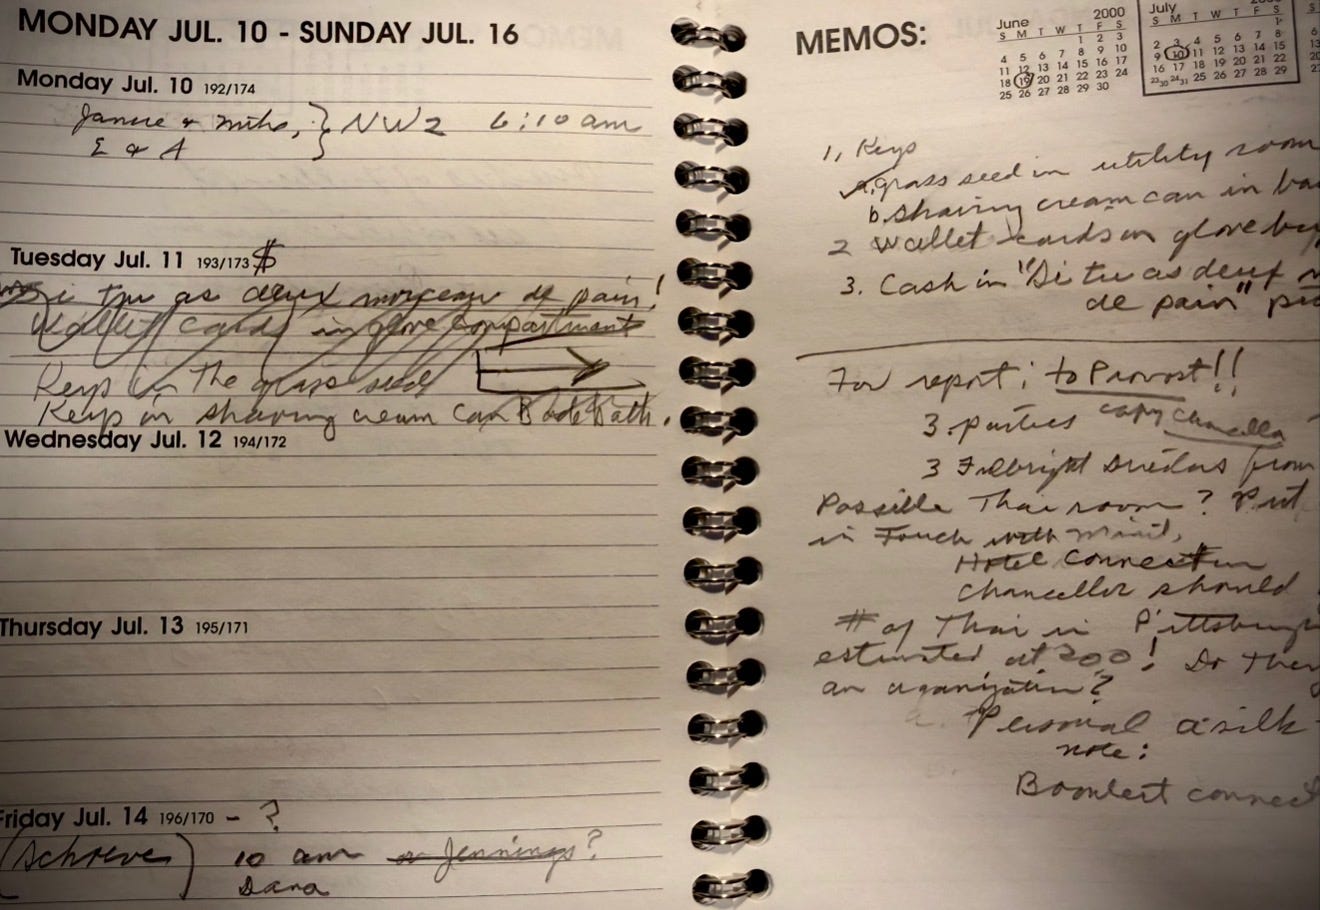 MONDAY JUL. 10 - SUNDAY JUL. 16
Monday Jul. 10 192/174
Janice & Mike, } NW2 6:10 am
E & A
Tuesday Jul. 11 193/173 $
Si tu as deux morceaux de pain!
Wallet cards in glove compartment
Keys in the grass seed
Keys in shaving cream can Bath.
Wednesday Jul. 12 194/172
Thursday Jul. 13 195/171
Friday Jul. 14 196/170 - ?
10 am or Jennings?
Dana
MEMOS:
June 2000
S M T W T F S
1 2 3
4 5 6 7 8 9 10
11 12 13 14 15 16 17
18 19 20 21 22 23 24
25 26 27 28 29 30
July
S M T W T F S
1
2 3 4 5 6 7 8
9 10 11 12 13 14 15
16 17 18 19 20 21 22
23 30 24 31 25 26 27 28 29
1, Keys
a. grass seed in utility room
b. shaving cream can in
2 Wallet cards in glove
3. Cash in "Si tu as deux
de pain"
For report: to Provost!!
3 parties copy
3 Fulbright from
Possible Thai room? Put
in Touch with
Hotel Connection
Chancellor should
# of Thai in Pittsburgh
estimated at 200! Do They
an organization?
Personal a silk
note:
connect